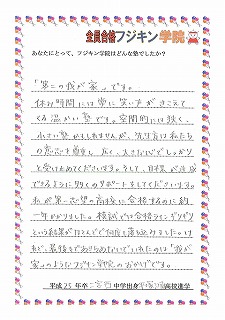 全員合格フジキン学院
あなたにとって、フジキン学院はどんな塾でしたか？
「第二の我が家」です。
休み時間には常に笑い声がきこえて
くる温かい塾です。空間的には狭く、
小さい塾かもしれませんが、先生方は私たち
の意志を尊重し、広く、大きな心でしっかり
と受け止めてくださいます。そして、目標が達成
できるように多くのサポートをしてくださいます。
私が第一志望の高校に合格するのに約
一年かかりました。模試では合格ラインギリギリ
という結果がほとんどで何度も落ち込みました。け
れど、最後まであきらめないでいれたのは「我が
家」のようなフジキン学院のおかげです。
平成25年卒 中学出身 高校進学